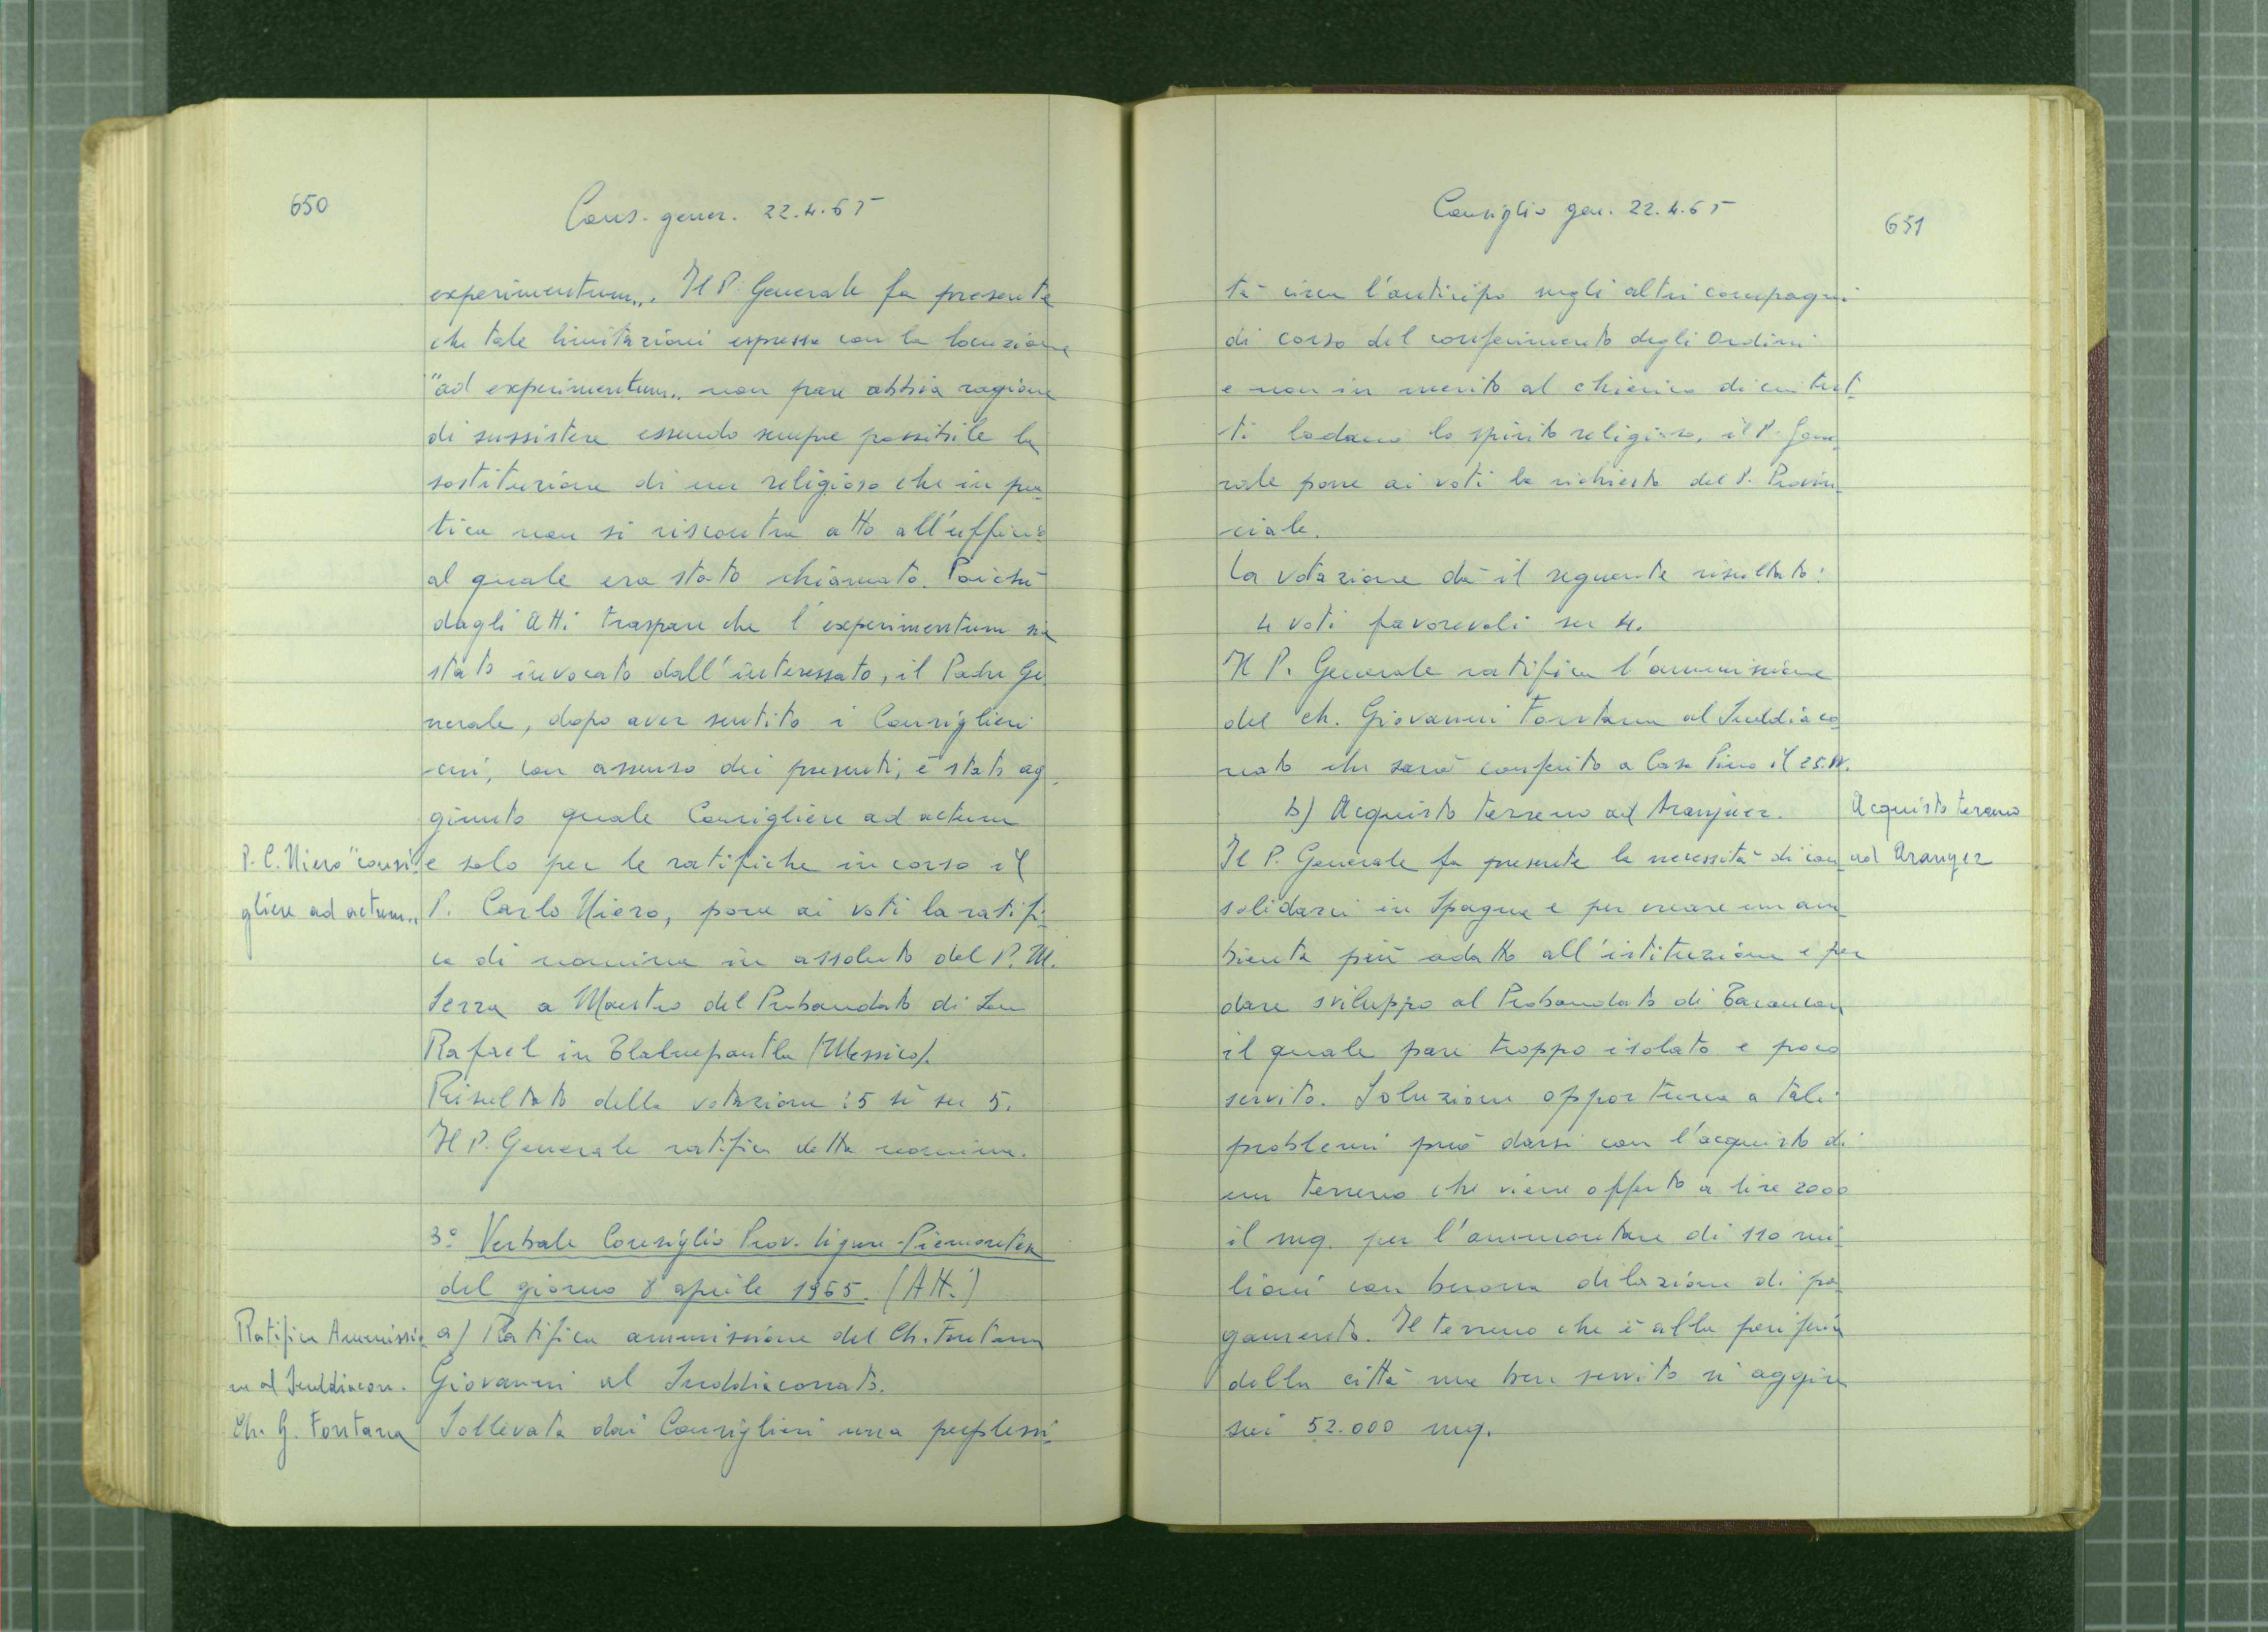 650
Cons. gener. 22.4.65
experimentum„. Il P. Generale fa presente
che tale limitazioni espresse con la locuzione
"ad experimentum„ non pare abbia ragione
di sussistere essendo sempre possibile la
sostituzione di un religioso che in pra-
tica non si riscontra atto all'ufficio
al quale era stato chiamato. Poichè
dagli Atti traspare che l'experimentum sia
stato invocato dall'interessato, il Padre Ge-
nerale, dopo aver sentito i Consiglieri
cui, con assenso dei presenti, è stato ag-
giunto quale Consigliere ad actum
P. C. Niero "consi-
e solo per le ratifiche in corso il
gliere ad actum„
P. Carlo Niero, pone ai voti la ratifi-
ca di nomina in assoluto del P. M.
Serra a Maestro del Probandato di San
Rafael in Tlalnepantla (Messico).
Risultato della votazione: 5 sì su 5.
Il P. Generale ratifica detta nomina.
3° Verbale Consiglio Prov. Ligure-Piemontese
del giorno 8 aprile 1965. (Att.)
Ratifica Ammissio
a) Ratifica ammissione del Ch. Fontana
ne al Suddiacon.
Giovanni al Suddiaconato.
Ch. G. Fontana
Sollevata dai Consiglieri una perplessi-
Consiglio gen. 22.4.65
651
tà circa l'anticipo sugli altri compagni
di corso del conferimento degli Ordini
e non in merito al chierico di cui tut-
ti lodano lo spirito religioso, il P. Gene-
rale pone ai voti la richiesta del P. Provin-
ciale.
La votazione dà il seguente risultato:
4 voti favorevoli su 4.
Il P. Generale ratifica l'ammissione
del ch. Giovanni Fontana al Suddiaco-
nato che sarà conferito a Casa Pino il 25.IV.
b) Acquisto terreno ad Aranjuez.
Acquisto terreno
Il P. Generale fa presente la necessità di con-
ad Aranyez
solidarci in Spagna e per creare un am-
biente più adatto all'istituzione e per
dare sviluppo al Probandato di Tarancon
il quale pare troppo isolato e poco
servito. Soluzione opportuna a tali
problemi può darsi con l'acquisto di
un terreno che viene offerto a lire 2000
il mq. per l'ammontare di 110 mi-
lioni con buona dilazione di pa-
gamento. Il terreno che è alla periferia
della città ma ben servito si aggira
sui 52.000 mq.